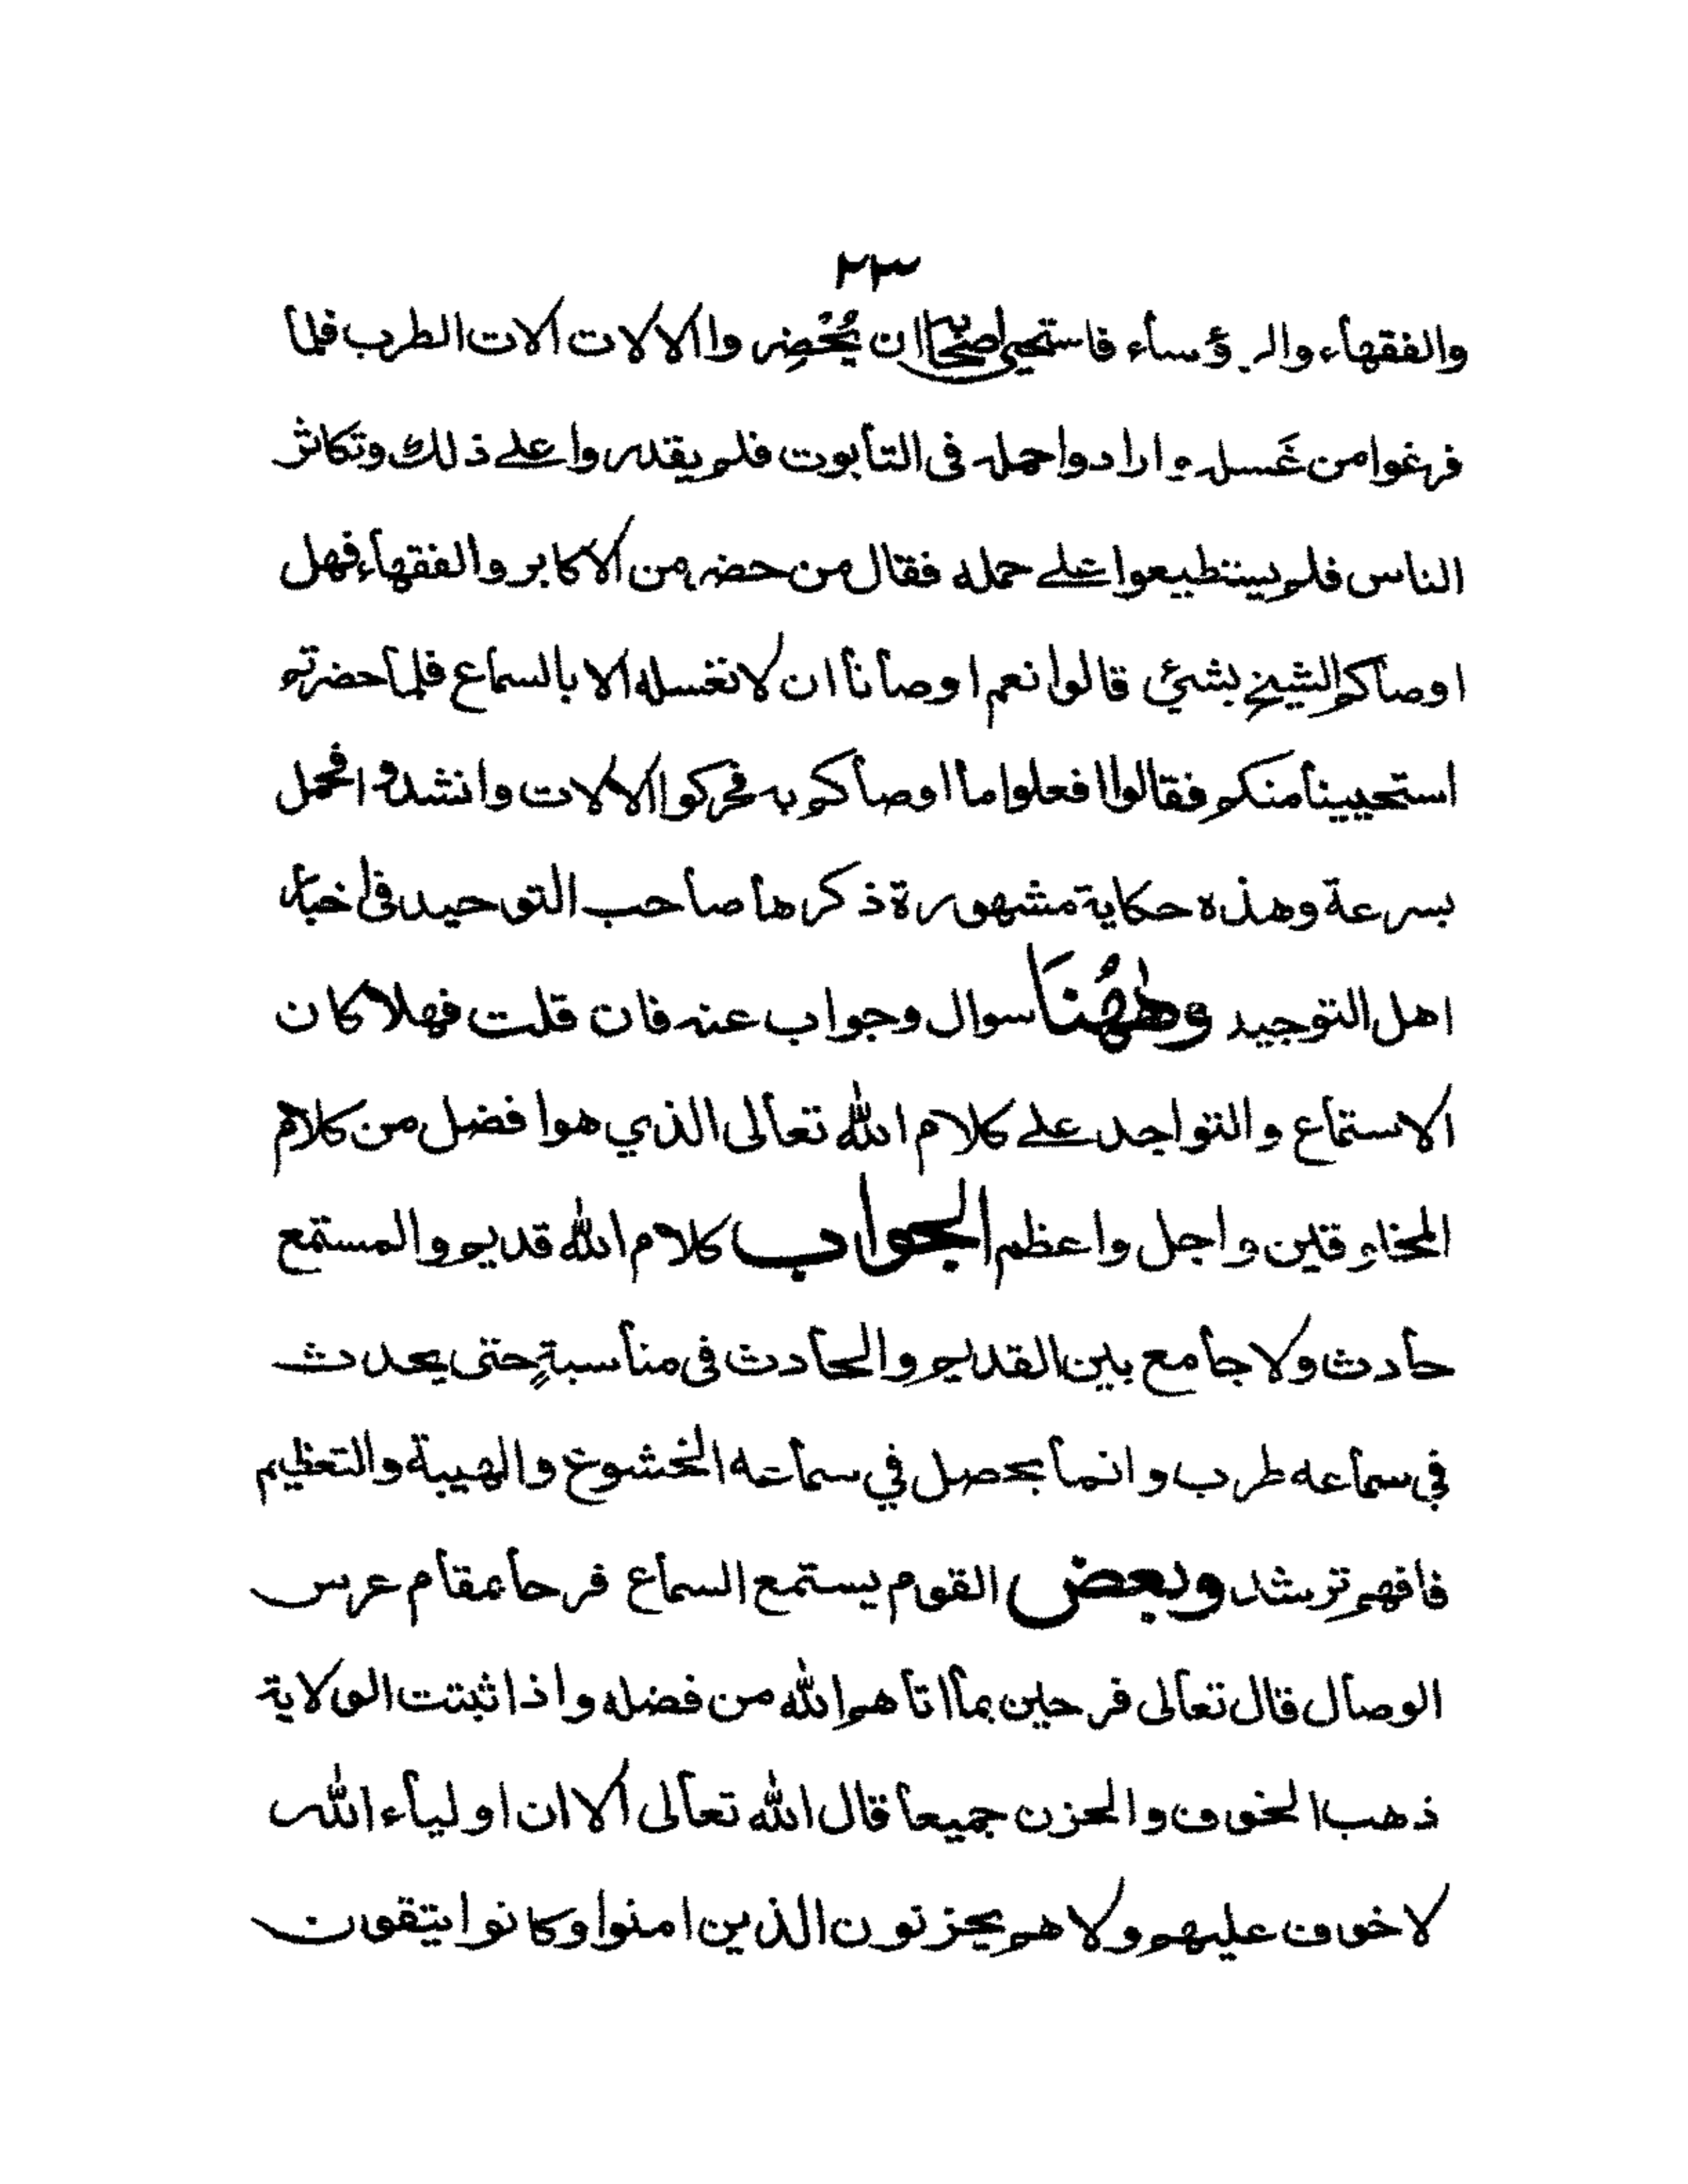 ٢٣
والفقهاء والرؤساء فاستحیى اصحابه ان يُحْضِروا الالات الات الطرب فلما
فرغوا من غَسله وارادوا حمله فى التابوت فلم يقدروا علے ذلك وتكاثر
الناس فلم يستطيعوا علے حمله فقال من حضر من الاكابر والفقهاء فهل
اوصاكم الشيخ بشئ قالوا نعم اوصانا ان لا نغسله الا بالسماع فلما حضرتم
استحيينا منكم فقالوا افعلوا ما اوصاكم به فحركوا الالات وانشدوا فحمل
بسرعة وهذه حكاية مشهورة ذكرها صاحب التوحيد فى اخبار
اهل التوحيد وهٰهُنَا سوال وجواب عنه فان قلت فهلا كان
الاستماع والتواجد علے كلام الله تعالى الذي هو افضل من كلام
المخلوقين واجل واعظم الجواب كلام الله قديم والمستمع
حادث ولا جامع بين القديم والحادث فى مناسبةٍ حتى يحدث
في سماعه طرب وانما يحصل في سماعه الخشوع والهيبة والتعظيم
فافهم ترشد وبعض القوم يستمع السماع فرحا بمقام عرس
الوصال قال تعالى فرحين بما اتاهم الله من فضله واذا ثبتت الولاية
ذهب الخوف والحزن جميعا قال الله تعالى الا ان اولياء الله
لا خوف عليهم ولا هم يحزنون الذين امنوا وكانوا يتقون